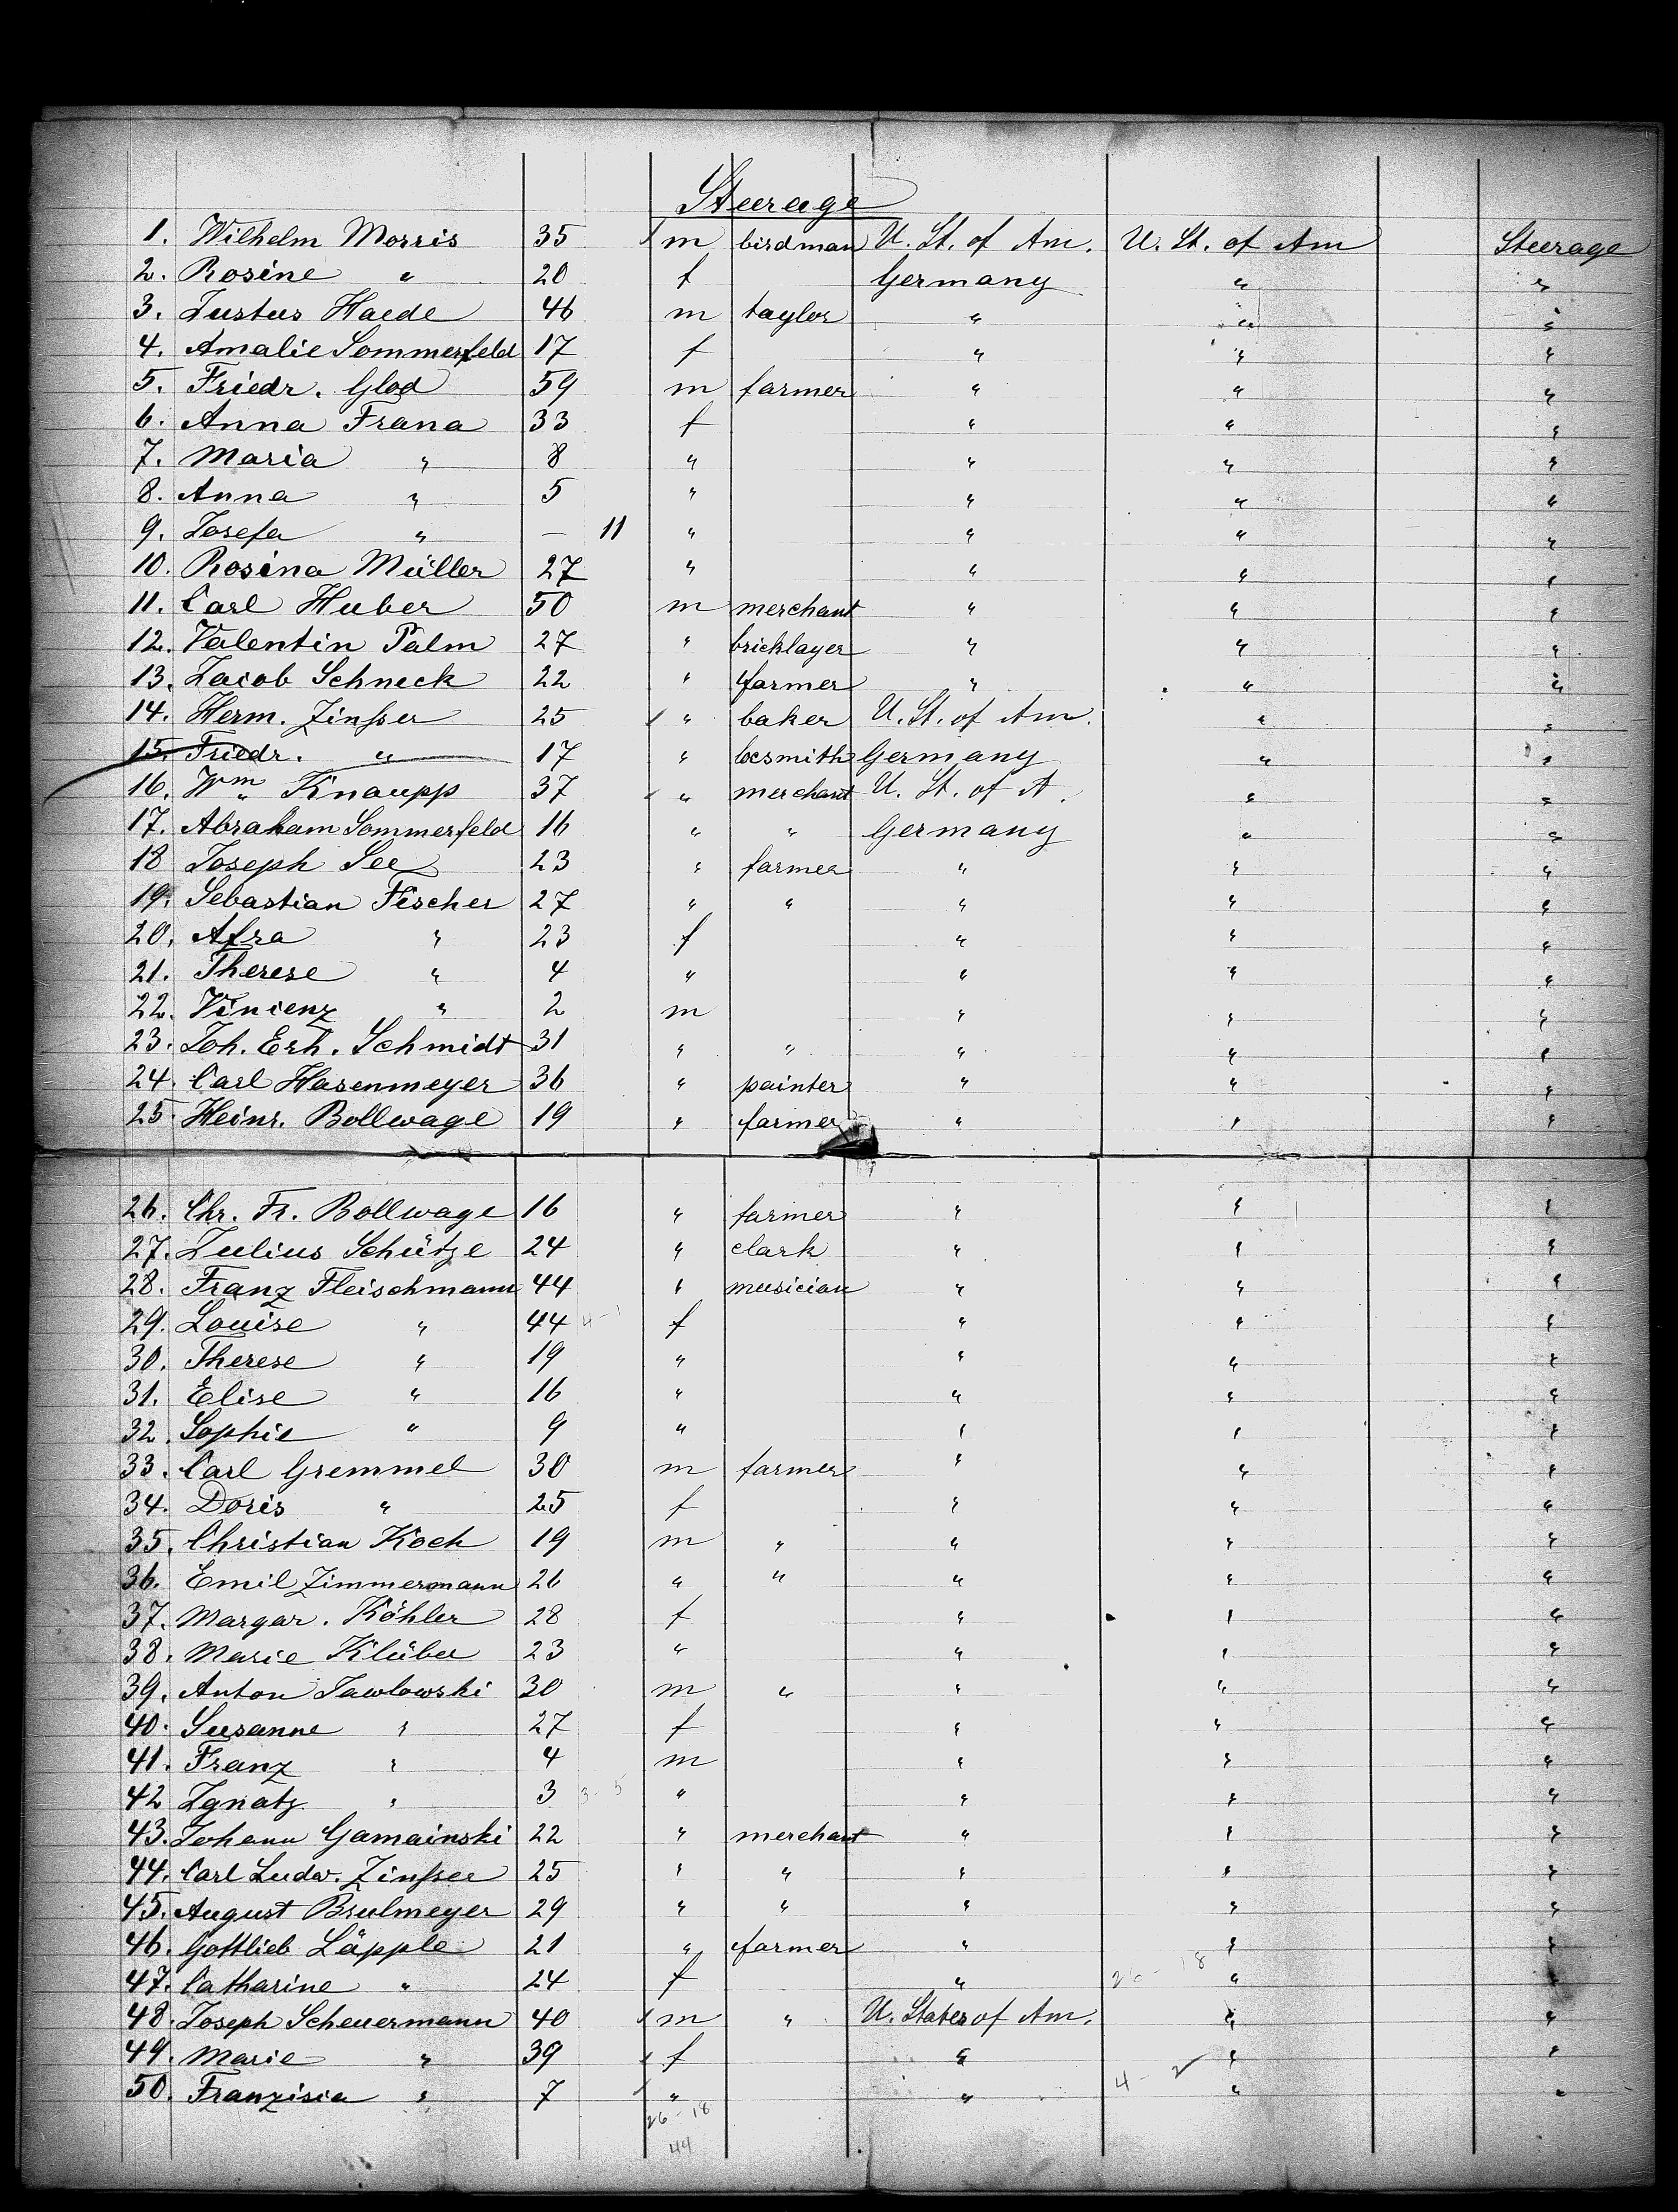 Steerage
1. Wilhelm Morris 35 m birdman U. St. of Am. U. St. of Am Steerage
2. Rosine " 20 f Germany " "
3. Justus Haede 46 m taylor " " "
4. Amalie Sommerfeld 17 f " " "
5. Friedr. Glod 59 m farmer " " "
6. Anna Frana 33 f " " "
7. Maria " 8 " " " "
8. Anna " 5 " " " "
9. Josefa " — 11 " " " "
10. Rosina Müller 27 " " " "
11. Carl Huber 50 m merchant " " "
12. Valentin Palm 27 " bricklayer " " "
13. Jacob Schneck 22 " farmer " " "
14. Herm. Zinsser 25 " baker U. St. of Am. " "
15. Friedr. " 17 " locsmith Germany " "
16. Wm Knaupp 37 " merchant U. St. of A. " "
17. Abraham Sommerfeld 16 " " Germany " "
18 Joseph See 23 " farmer " " "
19. Sebastian Fischer 27 " " " " "
20. Afra " 23 f " " "
21. Therese " 4 " " " "
22. Vincenz " 2 m " " "
23. Joh. Erh. Schmidt 31 " " " " "
24. Carl Hasenmeyer 36 " painter " " "
25 Heinr. Bollwage 19 " farmer " " "
26. Chr. Fr. Bollwage 16 " farmer " " "
27. Julius Schütze 24 " clark " " "
28. Franz Fleischmann 44 " musician " " "
29. Louise " 44 4-1 f " " "
30. Therese " 19 " " " "
31. Elise " 16 " " " "
32. Sophie " 9 " " " "
33. Carl Gremmel 30 m farmer " " "
34. Doris " 25 f " " "
35. Christian Koch 19 m " " " "
36. Emil Zimmermann 26 " " " " "
37. Margar. Köhler 28 f " " "
38. Marie Klüber 23 " " " "
39. Anton Jawlowski 30 m " " " "
40. Susanne " 27 f " " "
41. Franz " 4 m " " "
42 Ignatz " 3 3-5 " " " "
43. Johann Gamainski 22 " merchant " " "
44. Carl Ludw. Zinsser 25 " " " " "
45. August Brulmeyer 29 " " " " "
46. Gottlieb Läpple 21 " farmer " " "
47. Catharine " 24 f " 26-18 " "
48. Joseph Scheuermann 40 m " U. States of Am. " "
49. Marie " 39 f " " "
50. Franzisca " 7 " " 4-2 " "
26-18
44